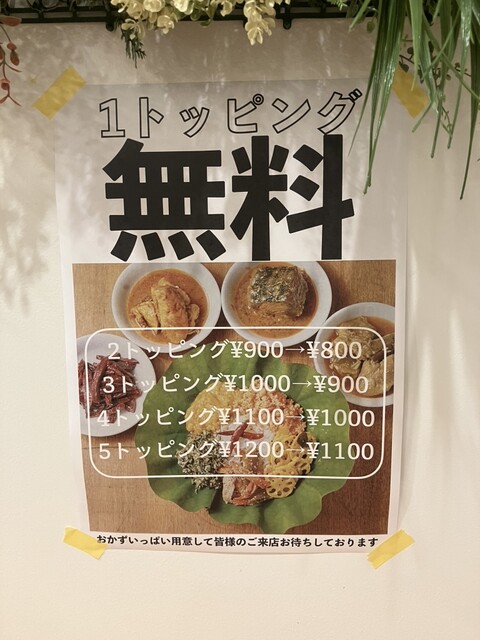 1トッピング
無料
2トッピング¥900→¥800
3トッピング¥1000→¥900
4トッピング¥1100→¥1000
5トッピング¥1200→¥1100
おかずいっぱい用意して皆様のご来店お待ちしております